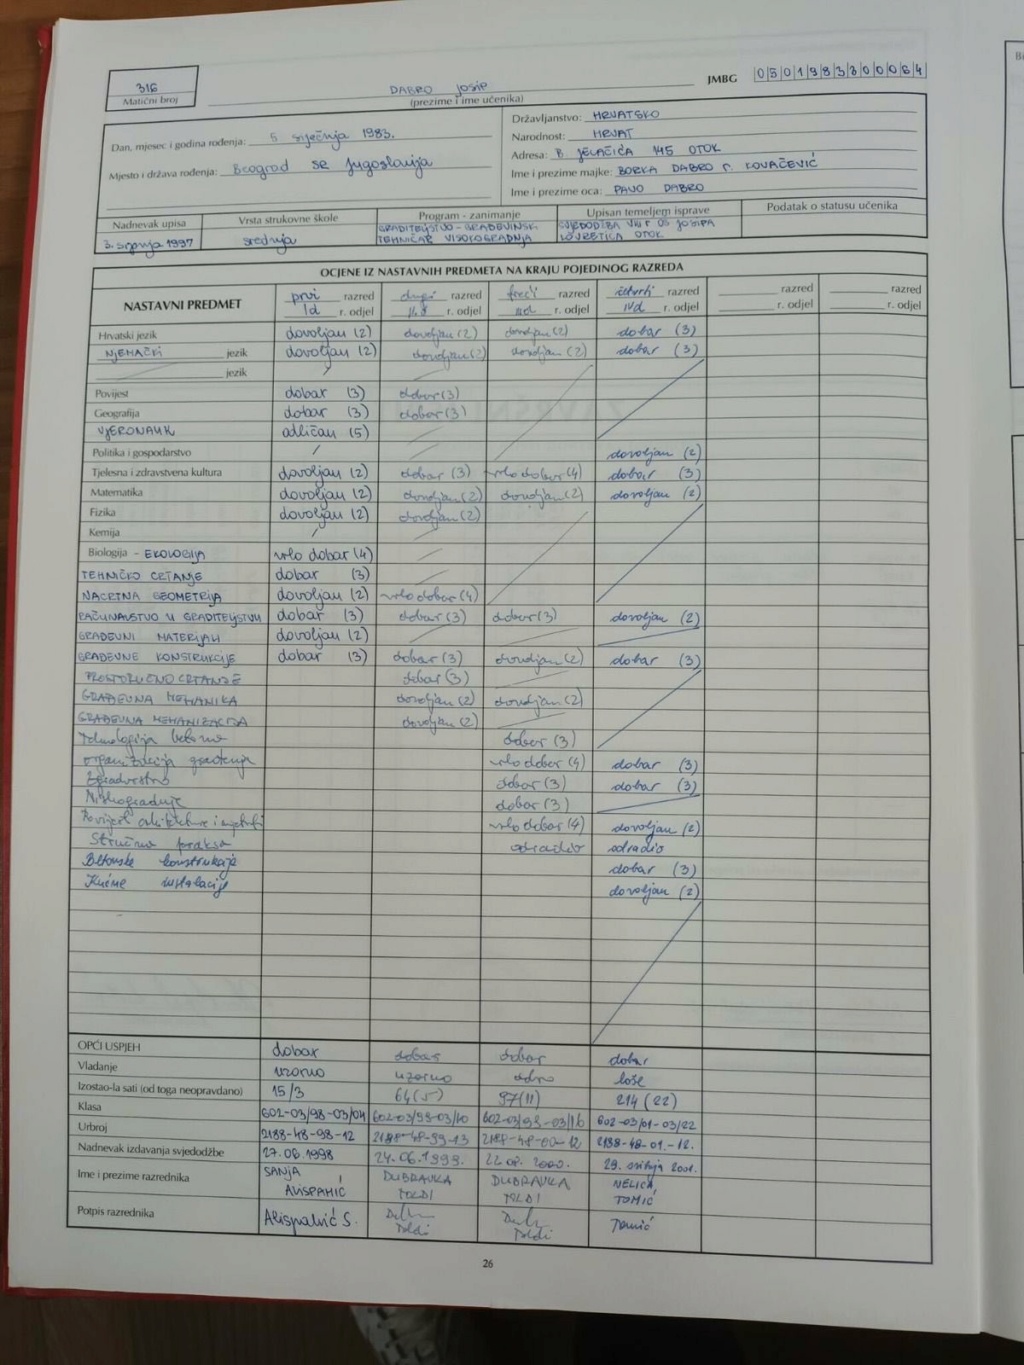 316
Matični broj
DABRO JOSIP
(prezime i ime učenika)
JMBG 0501983300064
Dan, mjesec i godina rođenja: 5 siječnja 1983.
Mjesto i država rođenja: Beograd SR Jugoslavija
Državljanstvo: HRVATSKO
Narodnost: HRVAT
Adresa: B JELAČIĆA 145 OTOK
Ime i prezime majke: BORKA DABRO r. KOVAČEVIĆ
Ime i prezime oca: PAVO DABRO
Nadnevak upisa Vrsta strukovne škole Program - zanimanje Upisan temeljem isprave Podatak o statusu učenika
3. srpnja 1997 srednja GRADITELJSTVO - GRAĐEVINSKI SVJEDODŽBA VIII r OŠ JOSIPA
TEHNIČAR VISOKOGRADNJA LOVRETIĆA OTOK
OCJENE IZ NASTAVNIH PREDMETA NA KRAJU POJEDINOG RAZREDA
NASTAVNI PREDMET
prvi razred drugi razred treći razred četvrti razred razred razred
Id r. odjel II.d r. odjel IIId r. odjel IVd r. odjel r. odjel r. odjel
Hrvatski jezik dovoljan (2) dovoljan (2) dovoljan (2) dobar (3)
NJEMAČKI jezik dovoljan (2) dovoljan (2) dovoljan (2) dobar (3)
jezik /
Povijest dobar (3) dobar (3)
Geografija dobar (3) dobar (3)
VJERONAUK odličan (5)
Politika i gospodarstvo / dovoljan (2)
Tjelesna i zdravstvena kultura dovoljan (2) dobar (3) vrlo dobar (4) dobar (3)
Matematika dovoljan (2) dovoljan (2) dovoljan (2) dovoljan (2)
Fizika dovoljan (2) dovoljan (2)
Kemija /
Biologija - EKOLOGIJA vrlo dobar (4)
TEHNIČKO CRTANJE dobar (3)
NACRTNA GEOMETRIJA dovoljan (2) vrlo dobar (4)
RAČUNALSTVO U GRADITELJSTVU dobar (3) dobar (3) dobar (3) dovoljan (2)
GRAĐEVNI MATERIJALI dovoljan (2)
GRAĐEVNE KONSTRUKCIJE dobar (3) dobar (3) dovoljan (2) dobar (3)
PROSTORUČNO CRTANJE dobar (3)
GRAĐEVNA MEHANIKA dovoljan (2) dovoljan (2)
GRAĐEVNA MEHANIZACIJA dovoljan (2)
Tehnologija betona dobar (3)
Organizacija građenja vrlo dobar (4) dobar (3)
Zgradarstvo dobar (3) dobar (3)
Niskogradnje dobar (3)
Povijest arhitekture i umjetn. vrlo dobar (4) dovoljan (2)
Stručna praksa odradio odradio
Betonske konstrukcije dobar (3)
Kućne instalacije dovoljan (2)
OPĆI USPJEH dobar dobar dobar dobar
Vladanje uzorno uzorno loše
Izostao-la sati (od toga neopravdano) 15/3 64 (5) 97 (11) 214 (22)
Klasa 602-03/98-03/04 602-03/99-03/10 602-03/16 602-03/01-03/22
Urbroj 2188-48-98-12 2188-48-99-13 2188-48-00-12 2188-48-01.-12.
Nadnevak izdavanja svjedodžbe 27.06.1998 24.06.1999. 2000. 29. svibnja 2001.
Ime i prezime razrednika SANJA DUBRAVKA DUBRAVKA NELICA
ALISPAHIĆ TOLDI TOLDI TOMIĆ
Potpis razrednika Alispahić S. Toldi Toldi Tomić
26